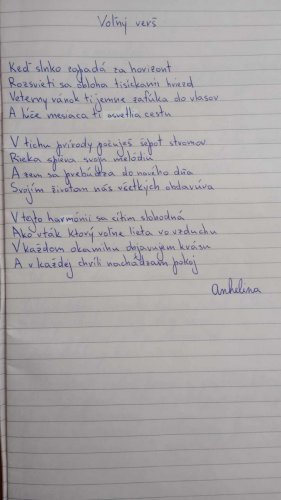 Voľný verš
Keď slnko zapadá za horizont
Rozsvieti sa obloha tisíckami hviezd
Veterný vánok ti jemne zafúka do vlasov
A lúče mesiaca ti osvetlia cestu
V tichu prírody počuješ šepot stromov
Rieka spieva svoju melódiu
A zem sa prebúdza do nového dňa
Svojím životom nás všetkých obdarúva
V tejto harmónii sa cítim slobodná
Ako vták ktorý voľne lieta vo vzduchu
V každom okamihu objavujem krásu
A v každej chvíli nachádzam pokoj
Anhelina